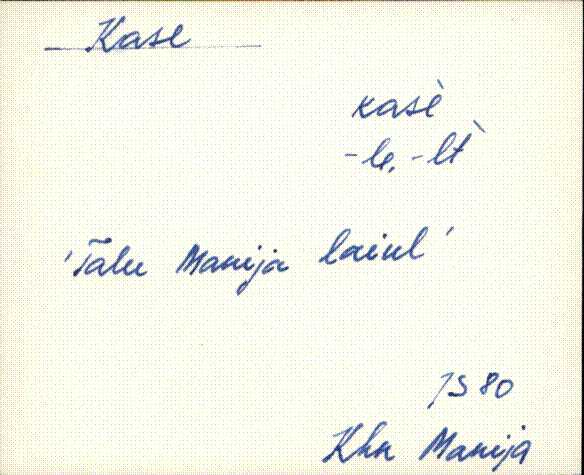 Kase
kasè
-le, -lt̀
'Talu Manija laiul'
JS 80
Khn Manija